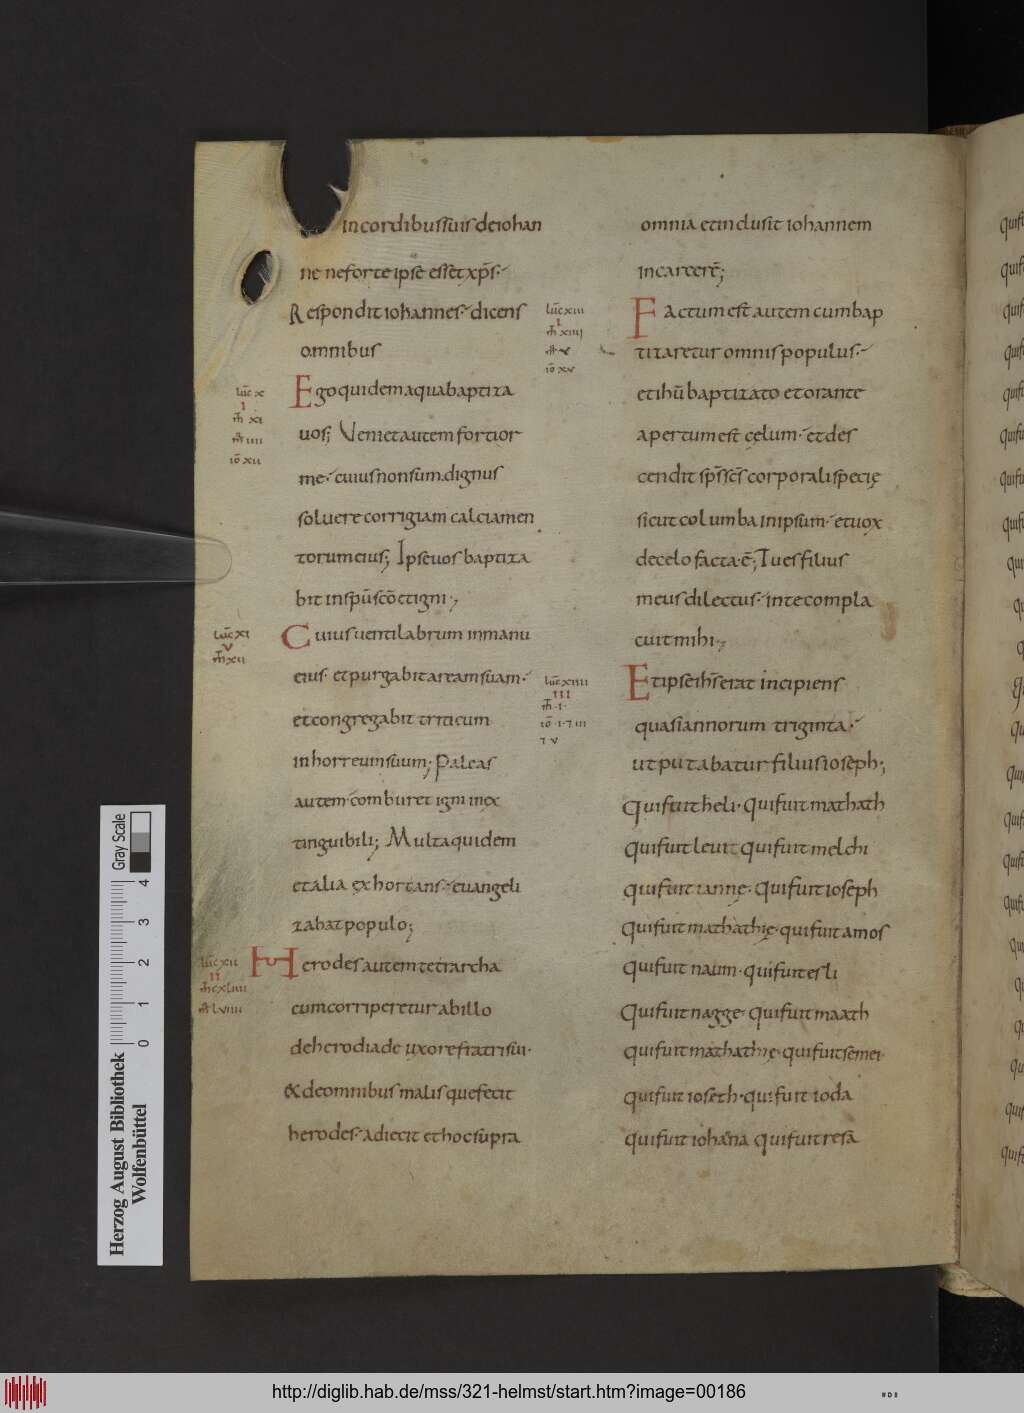 in cordibus suis de iohan
ne ne forte ipse esset xp̄s·
Respondit iohannes· dicens
omnibus
Ego quidem aqua baptiza
uos; Veniet autem fortior
me· cuius non sum dignus
soluere corrigiam calciamen
torum eius; Ipse uos baptiza
bit in sp̄u sc̄o et igni·,
Cuius uentilabrum in manu
eius· et purgabit aream suam·
et congregabit triticum
in horreum suum; Paleas
autem comburet igni inex
tinguibili; Multa quidem
et alia exhortans· euangeli
zabat populo;
Herodes autem tetrarcha
cum corriperetur ab illo
de herodiade uxore fratris sui·
& de omnibus malis que fecit
herodes· adiecit et hoc supra
luc̄ x
I
m̄ xi
m̄r iiii
io̅ xii
luc̄ xi
V
m̄ xii
luc̄ xii
II
m̄ cxliiii
m̄r lviiii
omnia et inclusit iohannem
in carcere̅;
Factum est autem cum bap
tizaretur omnis populus·
et ihū baptizato et orante
apertum est cęlum· et des
cendit sp̄s sc̄s corporali specię
sicut columba in ipsum· et uox
de celo facta·ē; Tu es filius
meus dilectus· in te compla
cuit mihi·,
Et ipse ihs̄ erat incipiens
quasi annorum triginta·
ut putabatur filius ioseph·;
Qui fuit heli· qui fuit mathath
qui fuit leui· qui fuit melchi
qui fuit ianne· qui fuit ioseph
qui fuit mathathię· qui fuit amos
qui fuit naum· qui fuit esli
Qui fuit nagge· qui fuit maath
qui fuit mathathię· qui fuit semei·
qui fuit ioseth· qui fuit ioda
qui fuit iohanna qui fuit resa
luc̄ xiii
I
m̄ xiiii
m̄r v
io̅ xv
luc̄ xiiii
III
m̄ ·i·
io̅ ·i·7 iii
7 v
Herzog August Bibliothek
Wolfenbüttel
Gray Scale
0 1 2 3 4
http://diglib.hab.de/mss/321-helmst/start.htm?image=00186